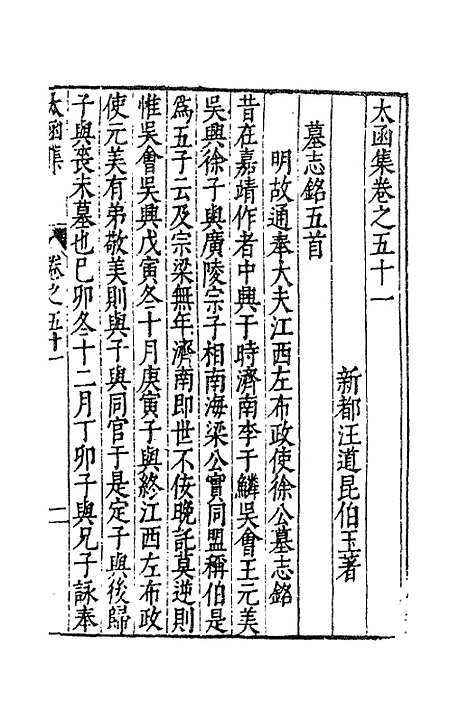 太函集卷之五十一
新都汪道昆伯玉著
墓志銘五首
明故通奉大夫江西左布政使徐公墓志銘
昔在嘉靖作者中興于時濟南李于鱗吳會王元美
吳興徐子與廣陵宗子相南海梁公實同盟稱伯是
爲五子云及宗梁無年濟南即世不佞晚託莫逆則
惟吳會吳興戊寅冬十月庚寅子與終江西左布政
使元美有弟敬美則與子與同官于是定子與後歸
子與喪未墓也已卯冬十二月丁卯子與兄子詠奉
太函集
卷之五十一